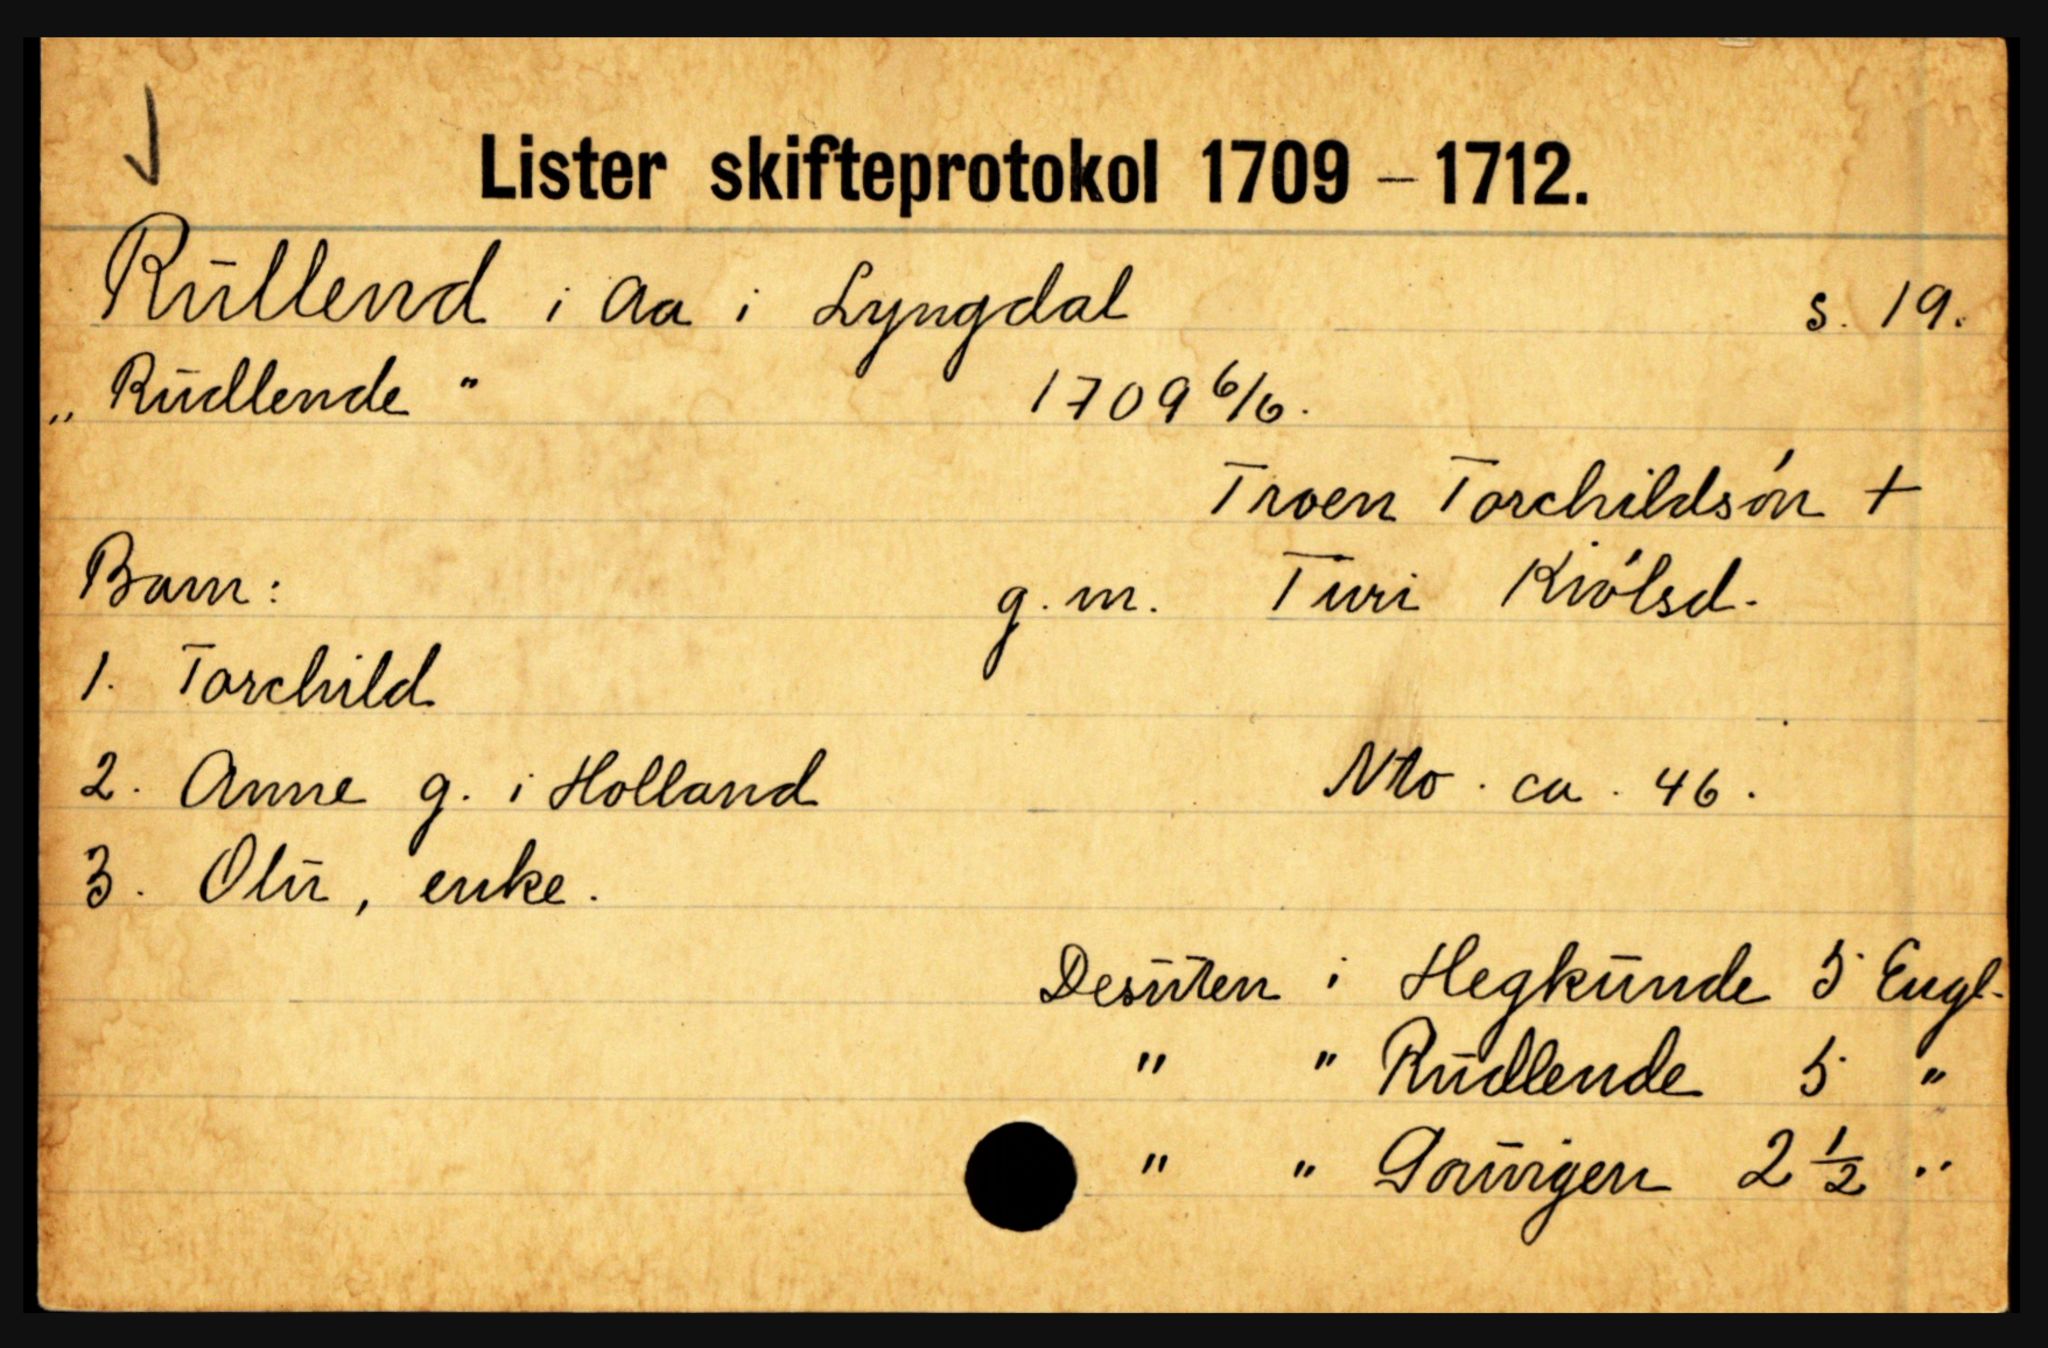 Lister skifteprotokol 1709 – 1712.
Rullend i Aa i Lyngdal s. 19.
„ Rudlende " 1709 6/6.
Troen Torchildsón +
Barn: g. m. Turi Kiólsd.
1. Torchild
2. Anne g. i Holland Ntto. ca. 46.
3. Olu, enke.
Desuten i Hegkunde 5 Engl.
" " Rudlende 5 "
" " 2 1/2 "